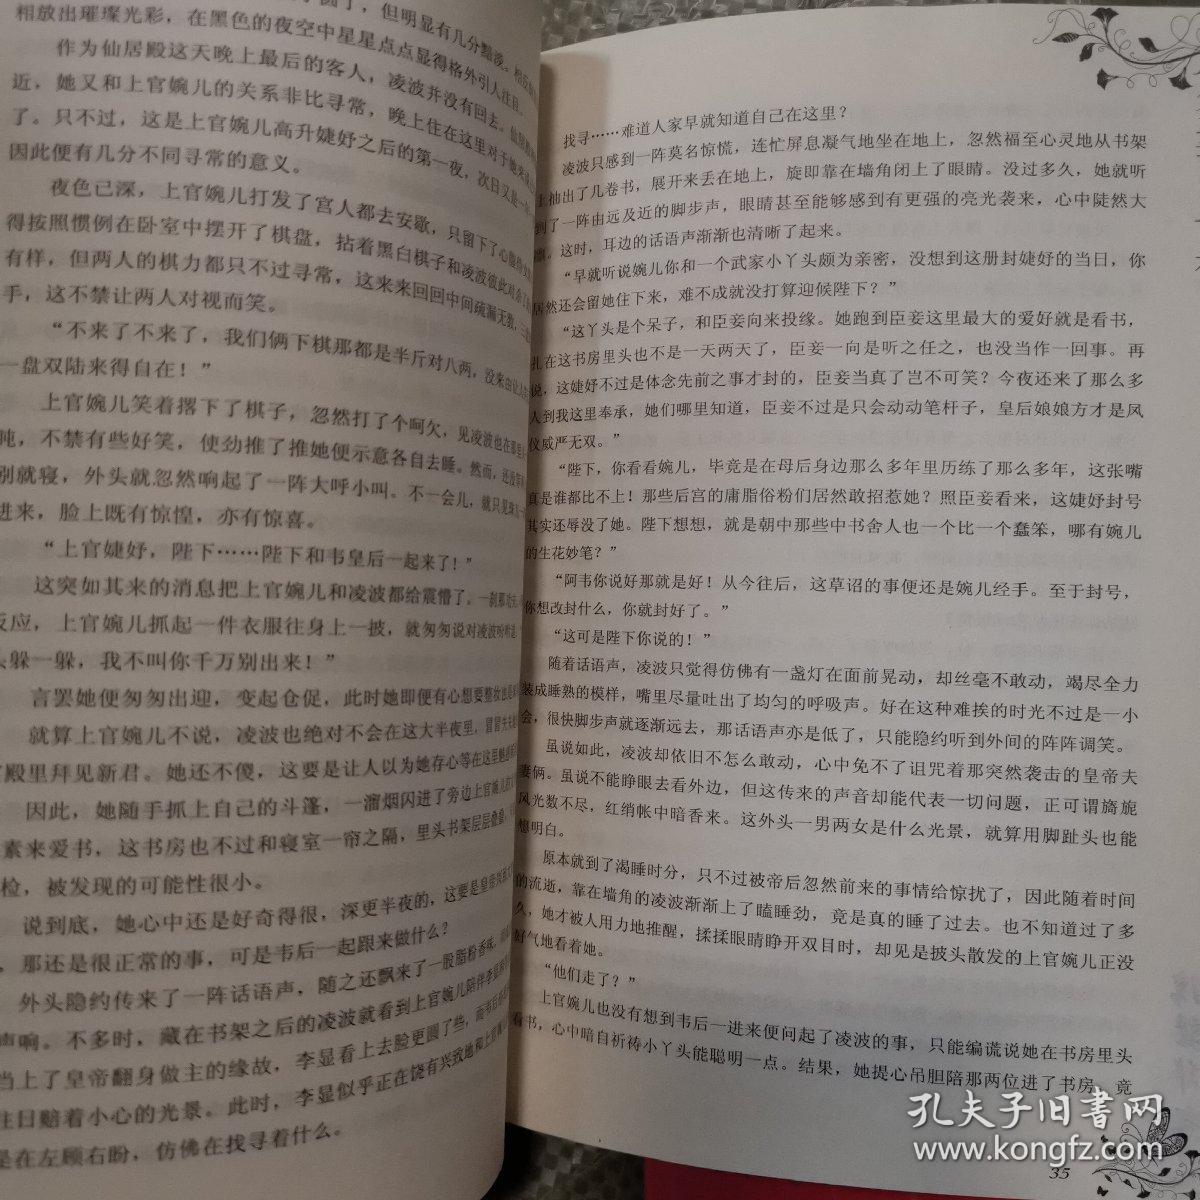 圆了，但明显有几分黯淡。相反
相放出璀璨光彩，在黑色的夜空中星星点点显得格外引人注目。
作为仙居殿这天晚上最后的客人，凌波并没有回去。仙居殿
近，她又和上官婉儿的关系非比寻常，晚上住在这里对于她来说
了。只不过，这是上官婉儿高升婕妤之后的第一夜，次日又是
因此便有几分不同寻常的意义。
夜色已深，上官婉儿打发了宫人都去安歇，只留下了心腹侍女
得按照惯例在卧室中摆开了棋盘，拈着黑白棋子和凌波彼此对杀了
有样，但两人的棋力都只不过寻常，这来来回回中间疏漏无数，三
手，这不禁让两人对视而笑。
“不来了不来了，我们俩下棋那都是半斤对八两，没来由让人
一盘双陆来得自在！”
上官婉儿笑着撂下了棋子，忽然打了个呵欠，见凌波也在那里
盹，不禁有些好笑，使劲推了推她便示意各自去睡。然而，还没等
别就寝，外头就忽然响起了一阵大呼小叫。不一会儿，就只见珠
进来，脸上既有惊惶，亦有惊喜。
“上官婕妤，陛下……陛下和韦皇后一起来了！”
这突如其来的消息把上官婉儿和凌波都给震懵了。一刹那功夫
反应，上官婉儿抓起一件衣服往身上一披，就匆匆说对凌波吩咐道
头躲一躲，我不叫你千万别出来！”
言罢她便匆匆出迎，变起仓促，此时她即便有心想要整妆也是
就算上官婉儿不说，凌波也绝对不会在这大半夜里，冒冒失失地
殿里拜见新君。她还不傻，这要是让人以为她存心等在这里魅惑
因此，她随手抓上自己的斗篷，一溜烟闪进了旁边上官婉儿的
素来爱书，这书房也不过和寝室一帘之隔，里头书架层层叠叠，
检，被发现的可能性很小。
说到底，她心中还是好奇得很，深更半夜的，这要是皇帝兴致
，那还是很正常的事，可是韦后一起跟来做什么？
外头隐约传来了一阵话语声，随之还飘来了一股脂粉香味，
声响。不多时，藏在书架之后的凌波就看到上官婉儿陪伴李显
当上了皇帝翻身做主的缘故，李显看上去脸更圆了些，而韦后
往日赔着小心的光景。此时，李显似乎正在饶有兴致地和上官婉儿
是在左顾右盼，仿佛在找寻着什么。
找寻……难道人家早就知道自己在这里？
凌波只感到一阵莫名惊慌，连忙屏息凝气地坐在地上，忽然福至心灵地从书架
上抽出了几卷书，展开来丢在地上，旋即靠在墙角闭上了眼睛。没过多久，她就听
到了一阵由远及近的脚步声，眼睛甚至能够感到有更强的亮光袭来，心中陡然大
凛。这时，耳边的话语声渐渐也清晰了起来。
“早就听说婉儿你和一个武家小丫头颇为亲密，没想到这册封婕妤的当日，你
居然还会留她住下来，难不成就没打算迎候陛下？”
“这丫头是个呆子，和臣妾向来投缘。她跑到臣妾这里最大的爱好就是看书，
扎在这书房里头也不是一天两天了，臣妾一向是听之任之，也没当作一回事。再
说，这婕妤不过是体念先前之事才封的，臣妾当真了岂不可笑？今夜还来了那么多
人到我这里奉承，她们哪里知道，臣妾不过是只会动动笔杆子，皇后娘娘方才是凤
仪威严无双。”
“陛下，你看看婉儿，毕竟是在母后身边那么多年里历练了那么多年，这张嘴
真是谁都比不上！那些后宫的庸脂俗粉们居然敢招惹她？照臣妾看来，这婕妤封号
其实还辱没了她。陛下想想，就是朝中那些中书舍人也一个比一个蠢笨，哪有婉儿
的生花妙笔？”
“阿韦你说好那就是好！从今往后，这草诏的事便还是婉儿经手。至于封号，
你想改封什么，你就封好了。”
“这可是陛下你说的！”
随着话语声，凌波只觉得仿佛有一盏灯在面前晃动，却丝毫不敢动，竭尽全力
装成睡熟的模样，嘴里尽量吐出了均匀的呼吸声。好在这种难挨的时光不过是一小
会，很快脚步声就逐渐远去，那话语声亦是低了，只能隐约听到外间的阵阵调笑。
虽说如此，凌波却依旧不怎么敢动，心中免不了诅咒着那突然袭击的皇帝夫
妻俩。虽说不能睁眼去看外边，但这传来的声音却能代表一切问题，正可谓旖旎
风光数不尽，红绡帐中暗香来。这外头一男两女是什么光景，就算用脚趾头也能
想明白。
原本就到了渴睡时分，只不过被帝后忽然前来的事情给惊扰了，因此随着时间
的流逝，靠在墙角的凌波渐渐上了瞌睡劲，竟是真的睡了过去。也不知道过了多
久，她才被人用力地推醒，揉揉眼睛睁开双目时，却见是披头散发的上官婉儿正没
好气地看着她。
“他们走了？”
上官婉儿也没有想到韦后一进来便问起了凌波的事，只能编谎说她在书房里头
看书，心中暗自祈祷小丫头能聪明一点。结果，她提心吊胆陪那两位进了书房，竟
35
孔夫子旧书网
www.kongfz.com